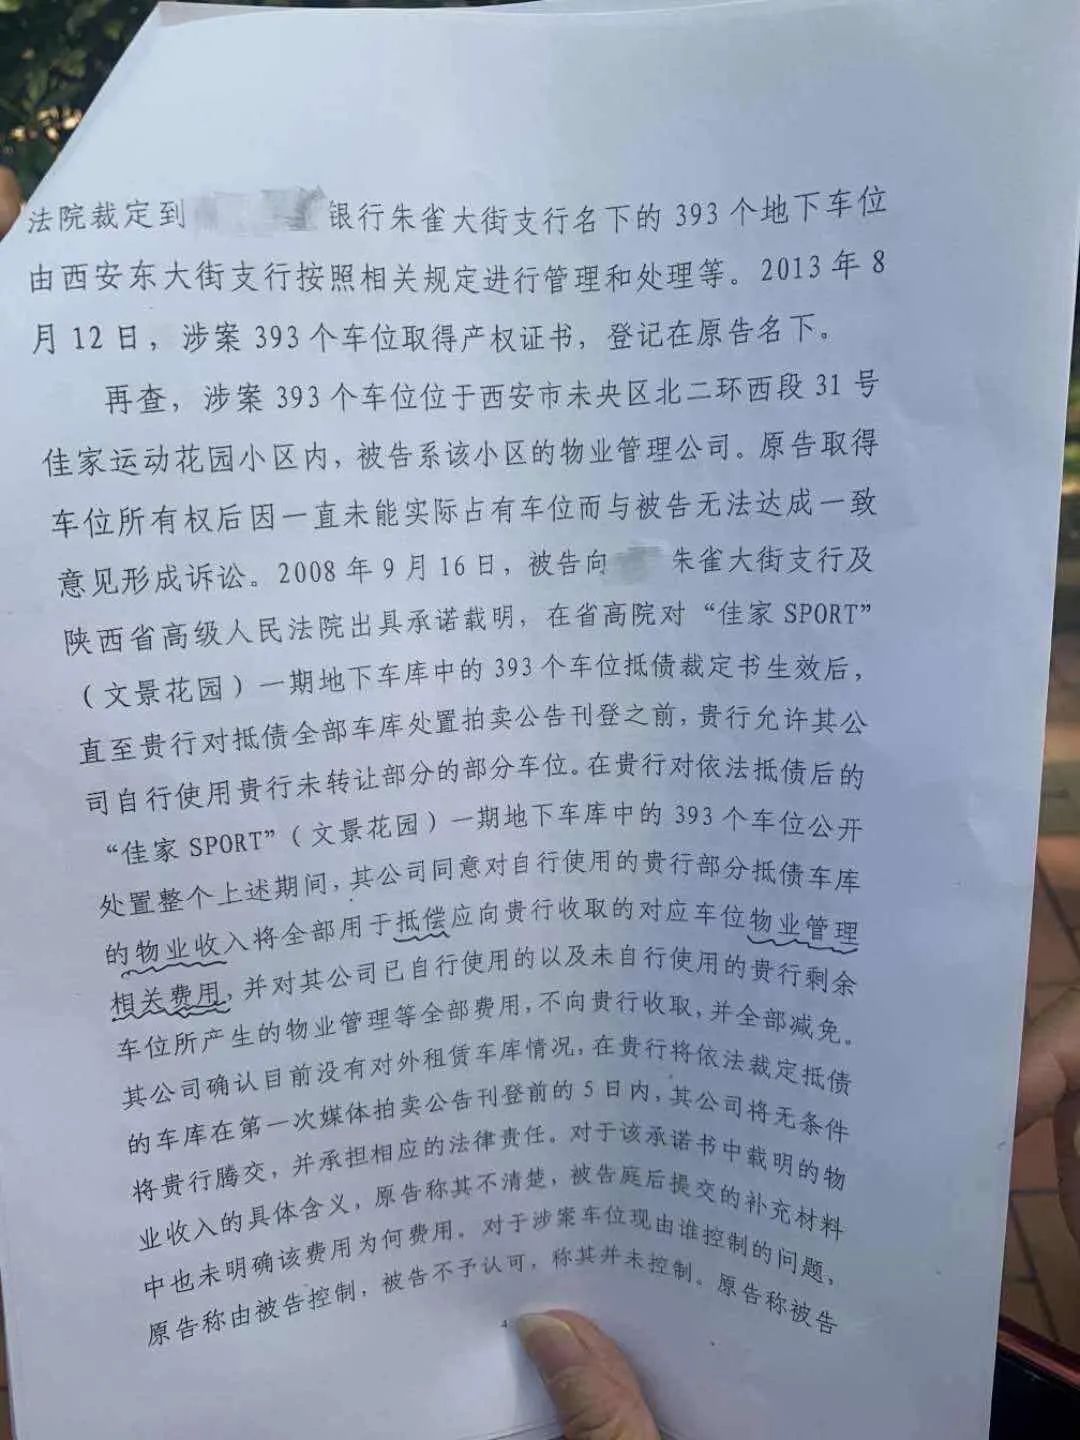 法院裁定到 银行朱雀大街支行名下的 393 个地下车位
由西安东大街支行按照相关规定进行管理和处理等。2013 年 8
月 12 日，涉案 393 个车位取得产权证书，登记在原告名下。
再查，涉案 393 个车位位于西安市未央区北二环西段 31 号
佳家运动花园小区内，被告系该小区的物业管理公司。原告取得
车位所有权后因一直未能实际占有车位而与被告无法达成一致
意见形成诉讼。2008 年 9 月 16 日，被告向 朱雀大街支行及
陕西省高级人民法院出具承诺载明，在省高院对“佳家 SPORT”
（文景花园）一期地下车库中的 393 个车位抵债裁定书生效后，
直至贵行对抵债全部车库处置拍卖公告刊登之前，贵行允许其公
司自行使用贵行未转让部分的部分车位。在贵行对依法抵债后的
“佳家 SPORT”（文景花园）一期地下车库中的 393 个车位公开
处置整个上述期间，其公司同意对自行使用的贵行部分抵债车库
的物业收入将全部用于抵偿应向贵行收取的对应车位物业管理
相关费用，并对其公司已自行使用的以及未自行使用的贵行剩余
车位所产生的物业管理等全部费用，不向贵行收取，并全部减免。
其公司确认目前没有对外租赁车库情况，在贵行将依法裁定抵债
的车库在第一次媒体拍卖公告刊登前的 5 日内，其公司将无条件
将贵行腾交，并承担相应的法律责任。对于该承诺书中载明的物
业收入的具体含义，原告称其不清楚，被告庭后提交的补充材料
中也未明确该费用为何费用。对于涉案车位现由谁控制的问题，
原告称由被告控制，被告不予认可，称其并未控制。原告称被告
4